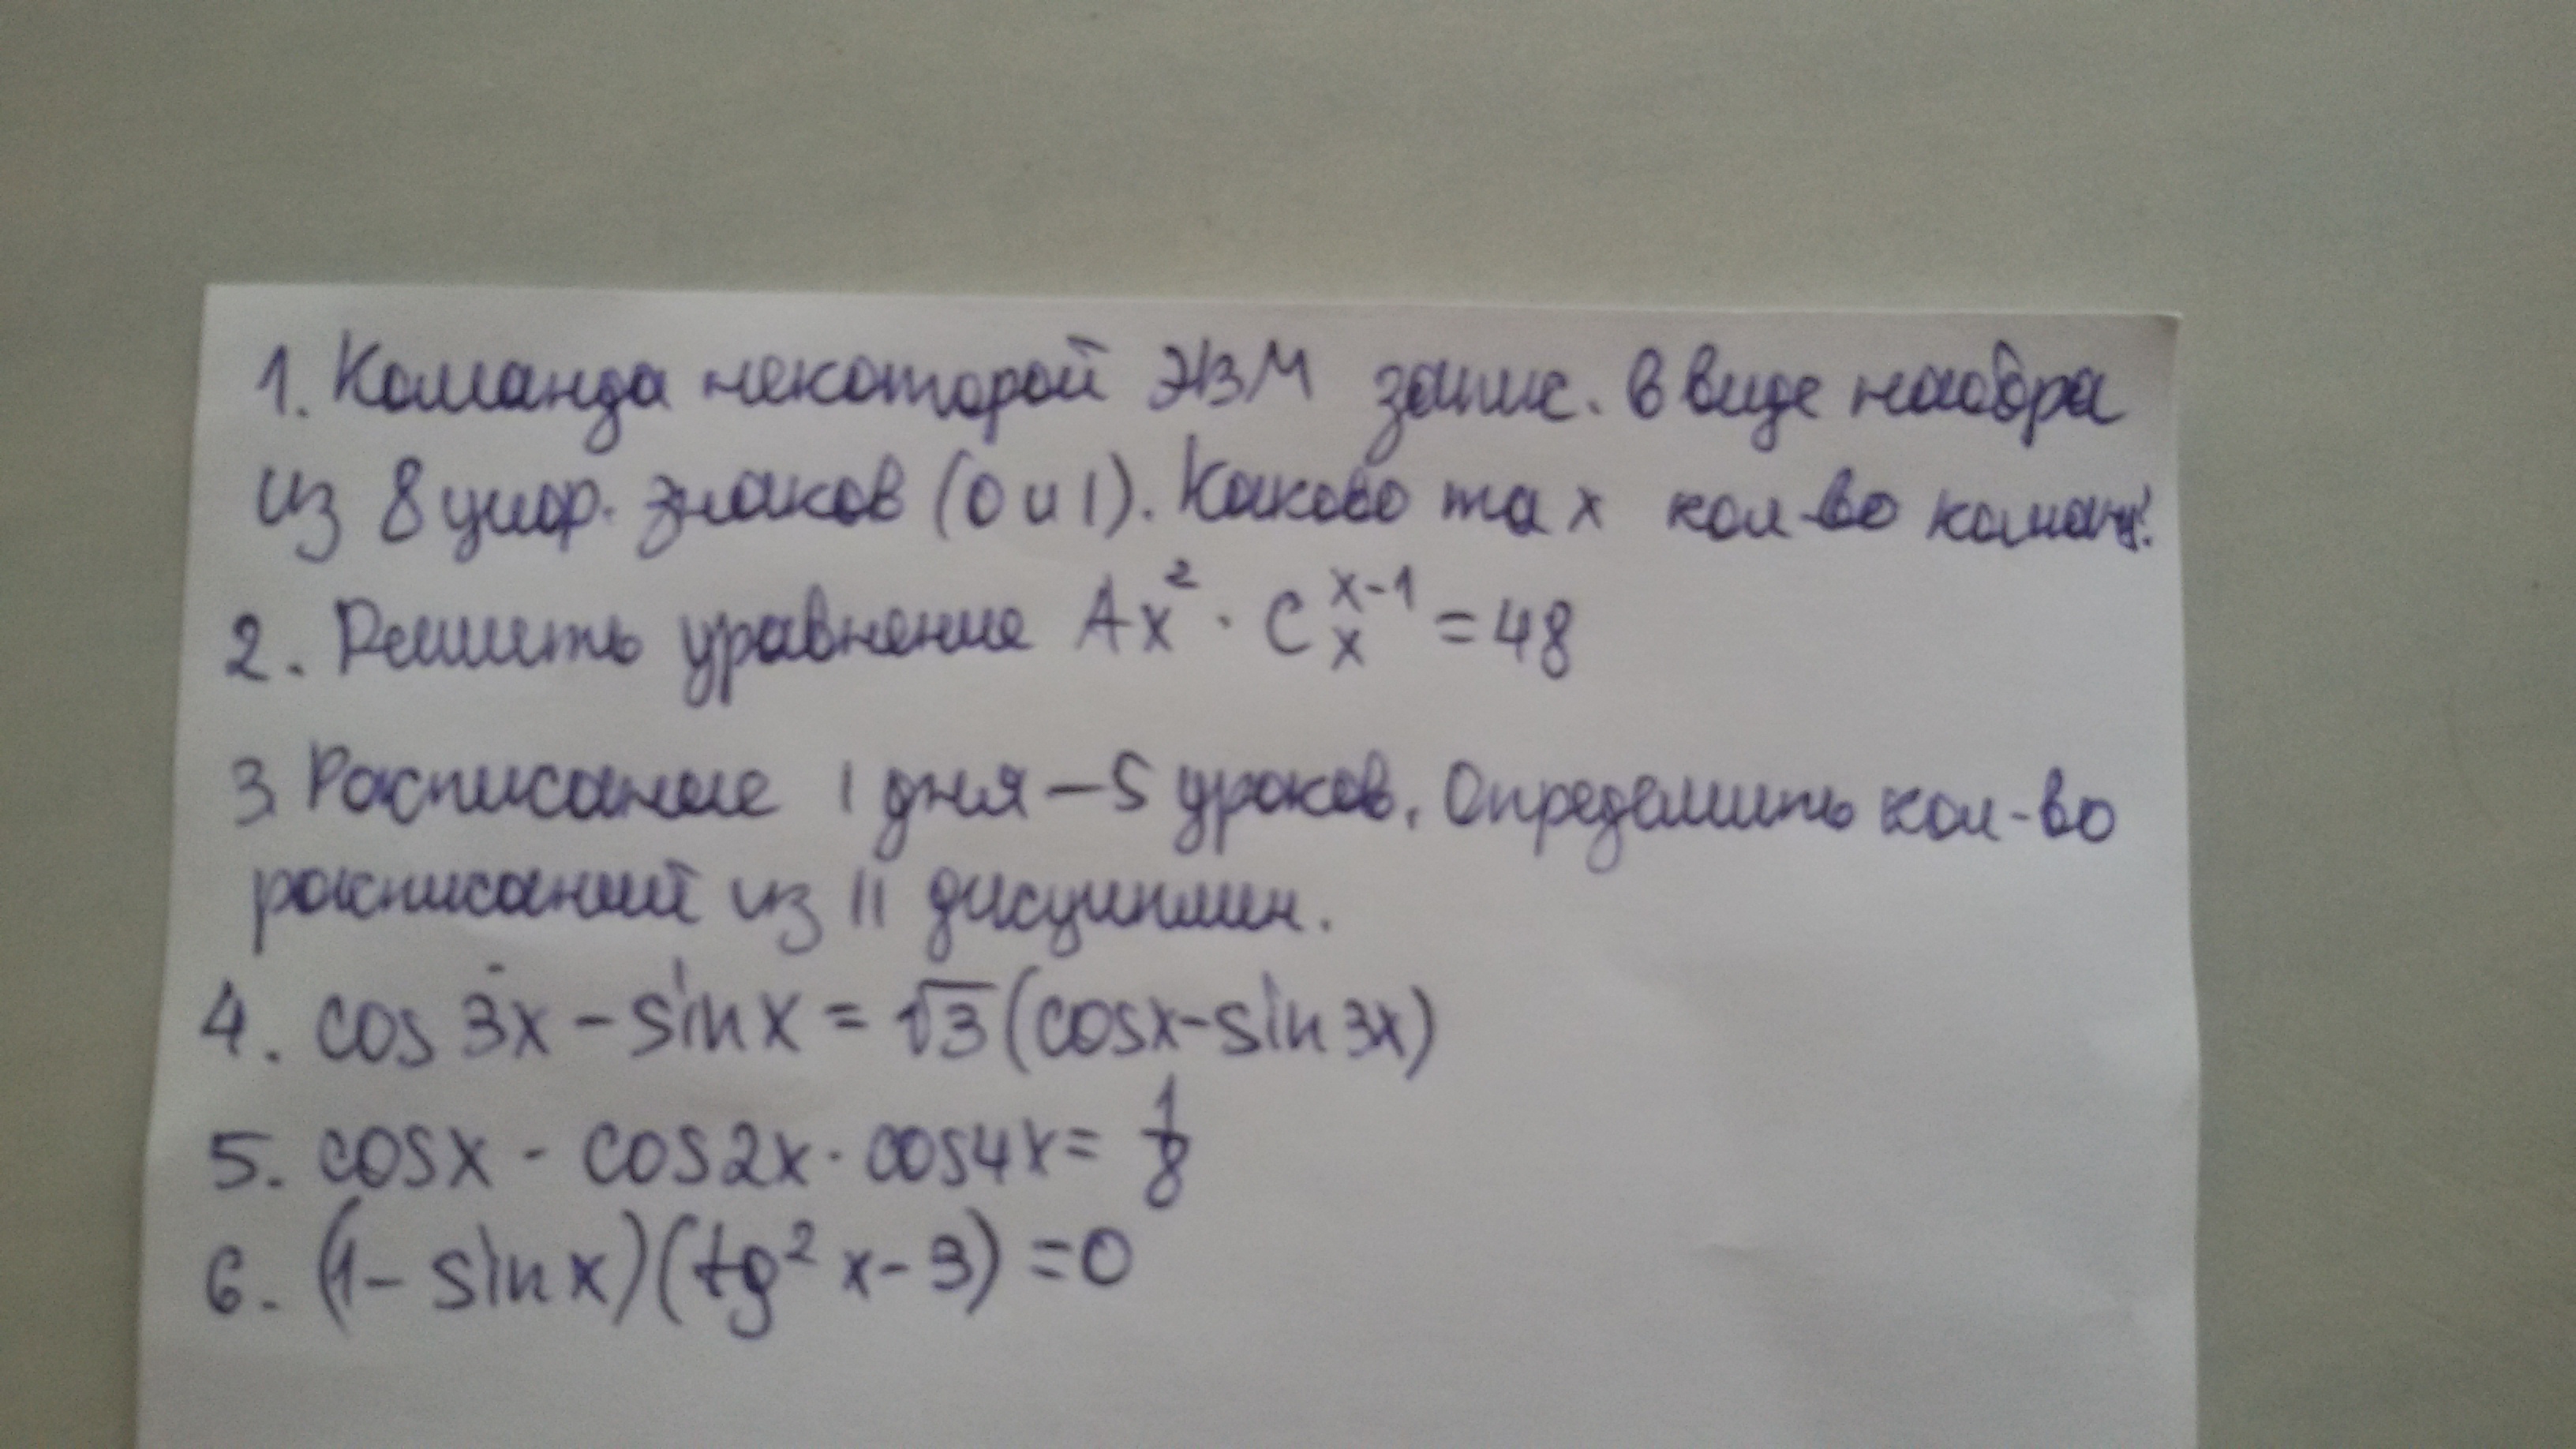 1. Команда некоторой ЭВМ запис. в виде набора
из 8 цифр. знаков (0 и 1). Каково max кол-во команд?
2. Решить уравнение Ax² · C x^(x-1) = 48
3. Расписание 1 дня – 5 уроков. Определить кол-во
расписаний из 11 дисциплин.
4. cos 3x - sin x = √3 (cosx - sin 3x)
5. cosx · cos2x · cos4x = 1/8
6. (1 - sin x)(tg² x - 3) = 0